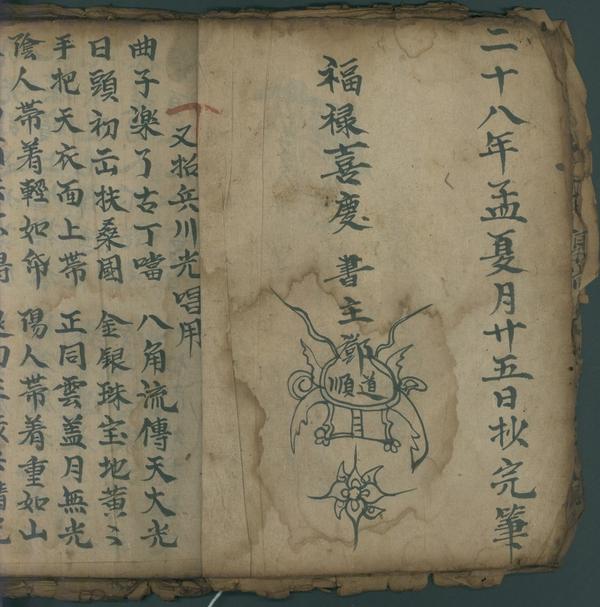 二十八年孟夏月廿五日抄完筆
福禄喜慶 書主鄧
道順
又招兵川光唱用
曲子楽了古丁噹 八角流傳天大光
日頭初岀扶桑國 金銀珠宝地黄〻
手把天衣面上帯 正同雲盖月無光
陰人帯着輕如帋 陽人帯着重如山